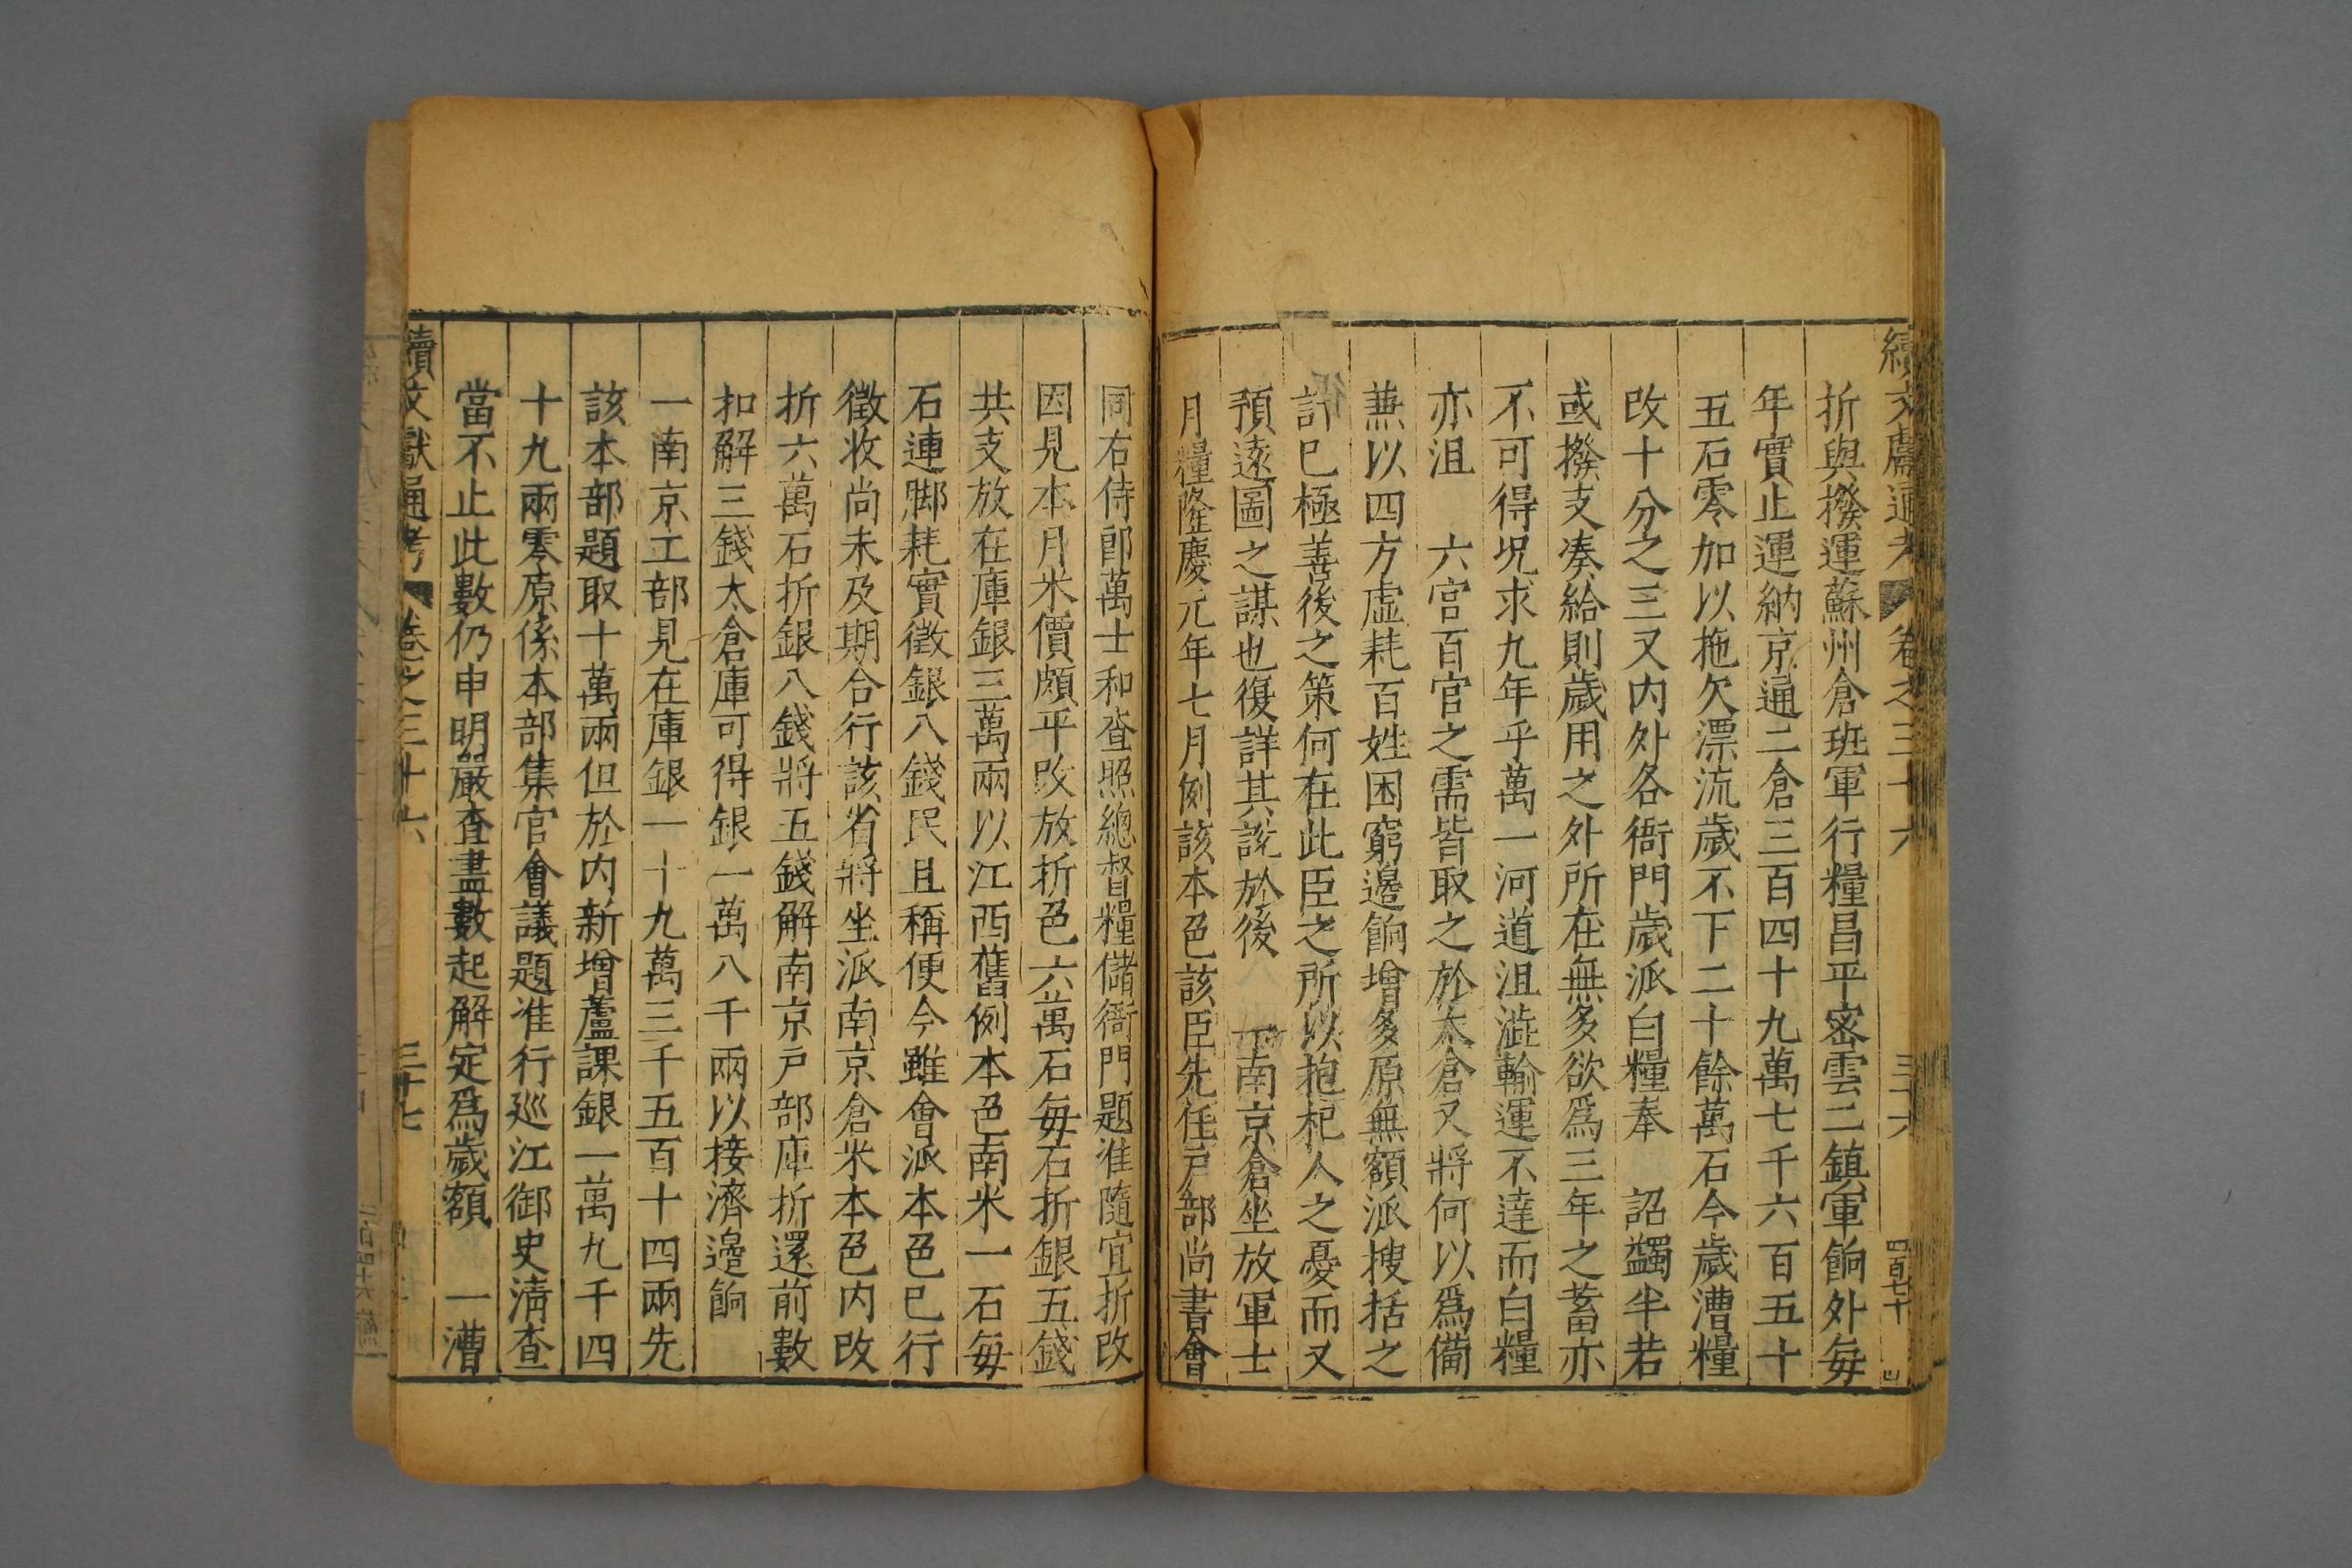 續文獻通考 卷之三十六 三十六 四百七十
折與撥運蘇州倉班軍行糧昌平密雲二鎮軍餉外每
年實止運納京通二倉三百四十九萬七千六百五十
五石零加以拖欠漂流歲不下二十餘萬石今歲漕糧
改十分之三又内外各衙門歲派白糧奉 詔蠲半若
或撥支凑給則歲用之外所在無多欲爲三年之蓄亦
不可得况求九年乎萬一河道沮澁輸運不達而白糧
亦沮 六宫百官之需皆取之於太倉又將何以爲備
兼以四方虛耗百姓困窮邊餉增多原無額派搜括之
計已極善後之策何在此臣之所以抱杞人之憂而又
預遠圖之謀也復詳其說於後 一南京倉坐放軍士
月糧隆慶元年七月例該本色該臣先任戶部尚書會
同右侍郎萬士和查照總督糧儲衙門題准隨宜折改
因見本月米價頗平改放折色六萬石每石折銀五錢
共支放在庫銀三萬兩以江西舊例本色南米一石每
石連脚耗實徵銀八錢民且稱便今雖會派本色已行
徵收尚未及期合行該省將坐派南京倉米本色内改
折六萬石折銀八錢將五錢解南京戶部庫折還前數
扣解三錢太倉庫可得銀一萬八千兩以接濟邉餉
一南京工部見在庫銀一十九萬三千五百十四兩先
該本部題取十萬兩但於内新增蘆課銀一萬九千四
十九兩零原係本部集官會議題准行廵江御史淸查
當不止此數仍申明嚴查盡數起解定爲歲額 一漕
續文獻通考 卷之三十六 三十七